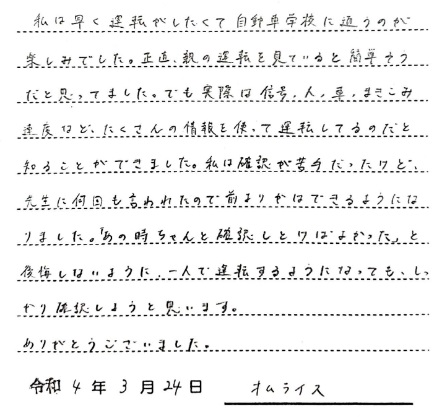 私は早く運転がしたくて自動車学校に通うのが
楽しみでした。正直、親の運転を見ていると簡単そう
だと思ってました。でも実際は信号、人、車、まきこみ
速度など、たくさんの情報を使って運転してるのだと
知ることができました。私は確認が苦手だったけど、
先生に何回も言われたので前よりかはできるようにな
りました。「あの時ちゃんと確認しとけばよかった」と
後悔しないように、一人で運転するようになっても、しっ
かり確認しようと思います。
ありがとうございました。
令和 4 年 3 月 24 日 オムライス